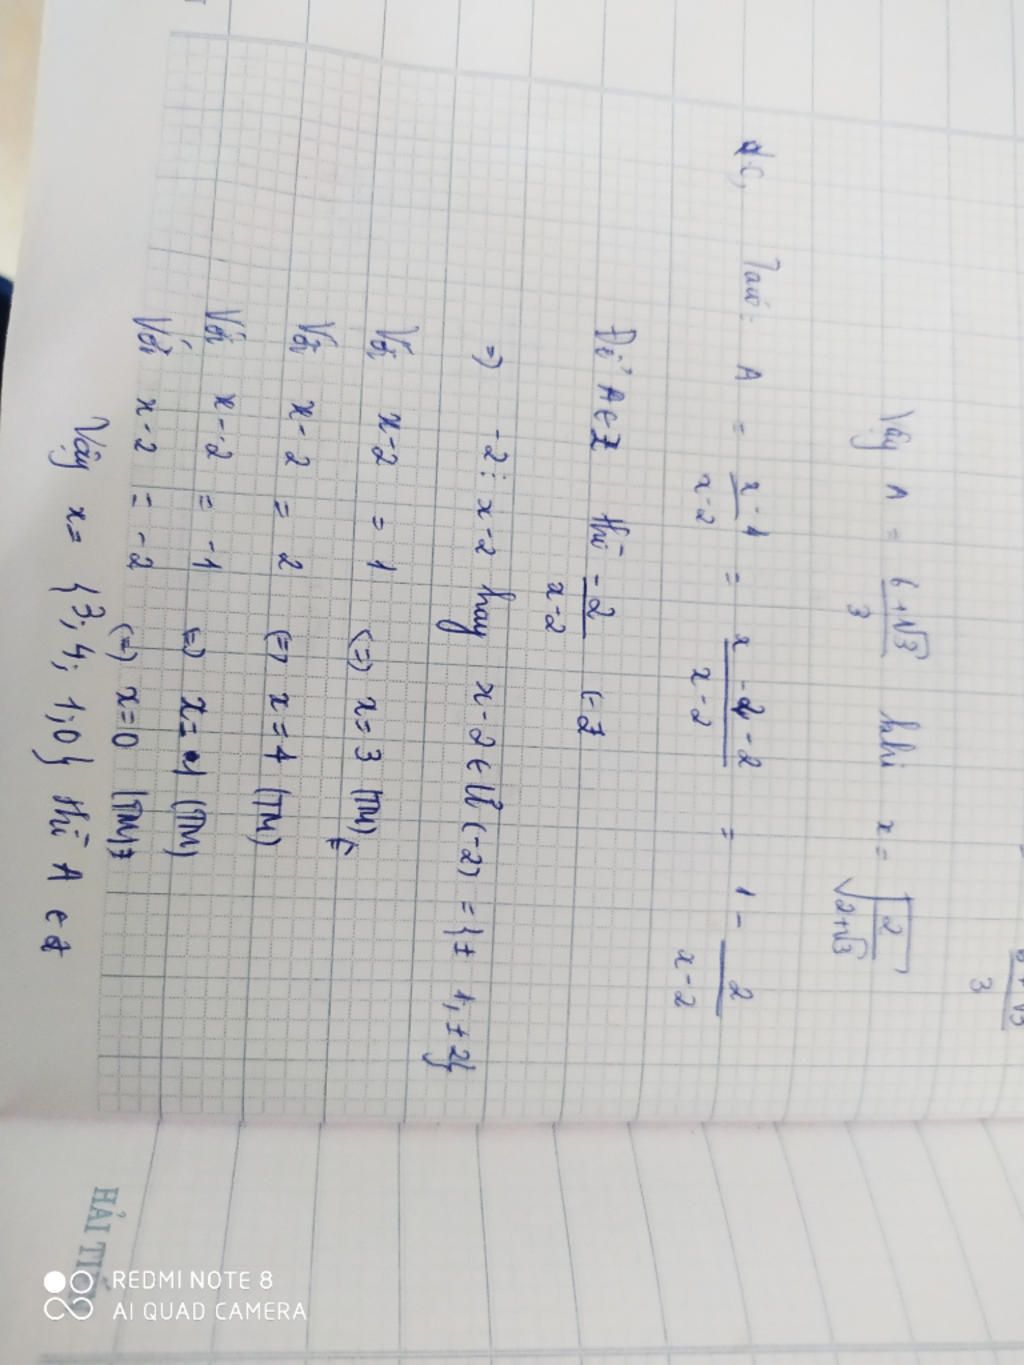 6+√3 / 3
Vậy A = (6+√3)/3 khi x = √(2/(2+√3))
c, Ta có: A = (x-4)/(x-2) = (x-2-2)/(x-2) = 1 - 2/(x-2)
Để A ∈ Z thì -2/(x-2) ∈ Z
=> -2 ⋮ x-2 hay x-2 ∈ Ư(-2) = {± 1, ± 2}
Với x-2 = 1 (=) x = 3 (TM)
Với x-2 = 2 (=) x = 4 (TM)
Với x-2 = -1 (=) x = 1 (TM)
Với x-2 = -2 (=) x = 0 (TM)
Vậy x = {3; 4; 1; 0} thì A ∈ Z
HẢI TI
REDMI NOTE 8
AI QUAD CAMERA